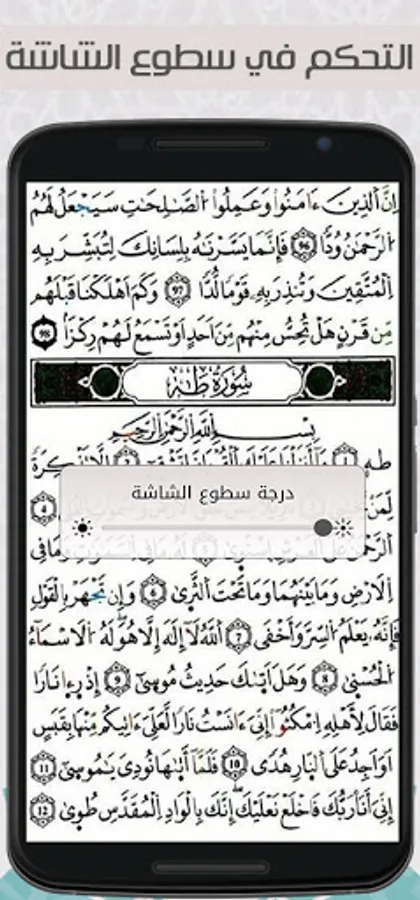 التحكم في سطوع الشاشة
إِنَّ ٱلَّذِينَ ءَامَنُوا۟ وَعَمِلُوا۟ ٱلصَّـٰلِحَـٰتِ سَيَجْعَلُ لَهُمُ
ٱلرَّحْمَـٰنُ وُدًّا 96 فَإِنَّمَا يَسَّرْنَـٰهُ بِلِسَانِكَ لِتُبَشِّرَ بِهِ
ٱلْمُتَّقِينَ وَتُنذِرَ بِهِۦ قَوْمًا لُّدًّا 97 وَكَمْ أَهْلَكْنَا قَبْلَهُم
مِّن قَرْنٍ هَلْ تُحِسُّ مِنْهُم مِّنْ أَحَدٍ أَوْ تَسْمَعُ لَهُمْ رِكْزًا 98
سُورَةُ طَهَ
بِسْمِ ٱللَّهِ ٱلرَّحْمَـٰنِ ٱلرَّحِيمِ
طه 1
درجة سطوع الشاشة
لِّمَنْ يَّخْشَىٰ 4
ٱلرَّحْمَـٰنُ عَلَى ٱلْعَرْشِ ٱسْتَوَىٰ 5 لَهُ مَا فِى ٱلسَّمَـٰوَٰتِ وَمَا فِى
ٱلْأَرْضِ وَمَا بَيْنَهُمَا وَمَا تَحْتَ ٱلثَّرَىٰ 6 وَإِن تَجْهَرْ بِٱلْقَوْلِ
فَإِنَّهُۥ يَعْلَمُ ٱلسِّرَّ وَأَخْفَى 7 ٱللَّهُ لَا إِلَـٰهَ إِلَّا هُوَ لَهُ ٱلْأَسْمَاءُ
ٱلْحُسْنَىٰ 8 وَهَلْ أَتَىٰكَ حَدِيثُ مُوسَىٰ 9 إِذْ رَءَا نَارًا
فَقَالَ لِأَهْلِهِ ٱمْكُثُوا إِنِّىَ ءَانَسْتُ نَارًا لَّعَلِّىَ ءَاتِيكُم مِّنْهَا بِقَبَسٍ
أَوْ أَجِدُ عَلَى ٱلنَّارِ هُدًى 10 فَلَمَّا أَتَىٰهَا نُودِىَ يَـٰمُوسَىٰ 11
إِنِّىَ أَنَا رَبُّكَ فَٱخْلَعْ نَعْلَيْكَ إِنَّكَ بِٱلْوَادِ ٱلْمُقَدَّسِ طُوَىٰ 12